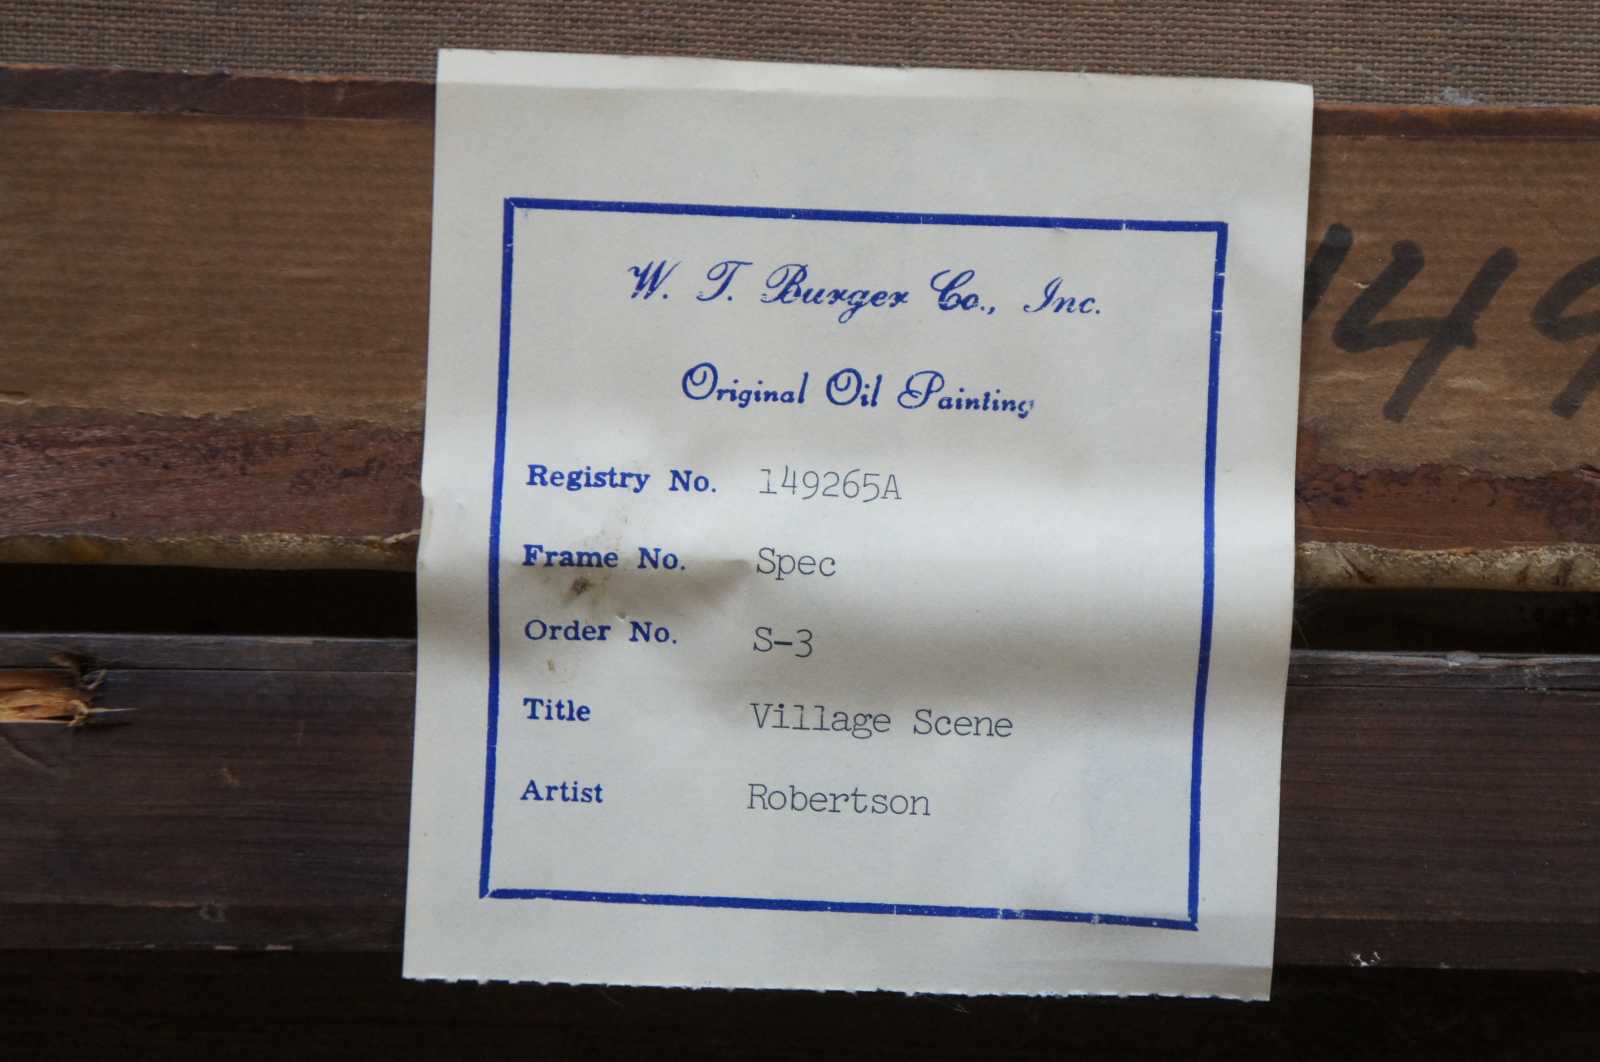 W. T. Burger Co., Inc.
Original Oil Painting
Registry No. 149265A
Frame No. Spec
Order No. S-3
Title Village Scene
Artist Robertson
149